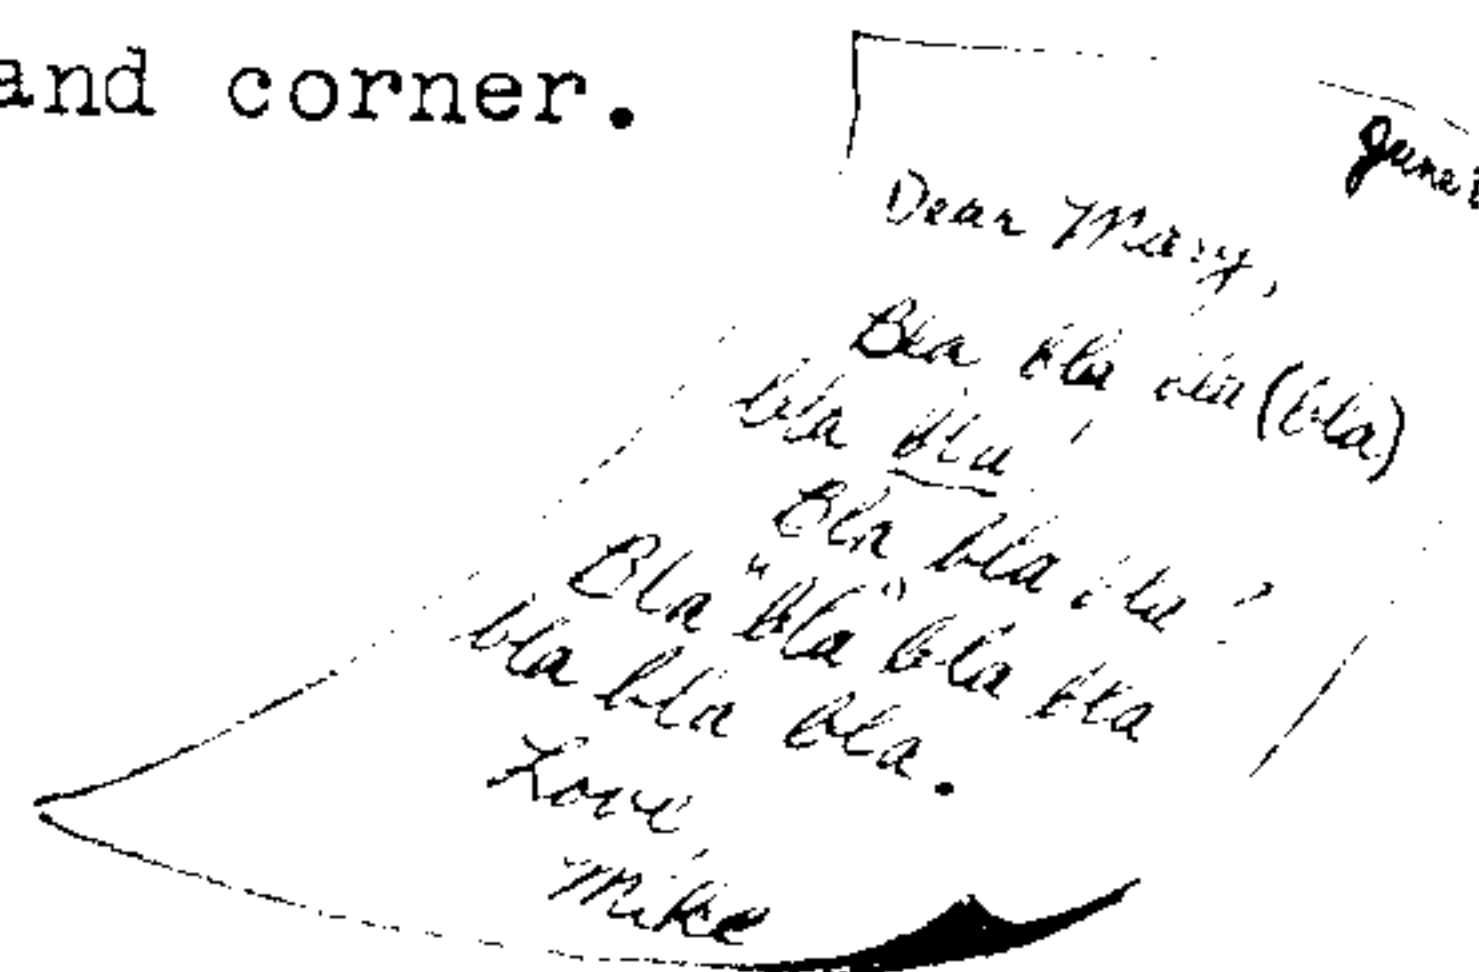 and corner.
June
Dear Mary,
Bla bla bla (bla)
bla bla!
Bla bla bla?
Bla "bla" bla bla
bla bla bla.
Love,
Mike